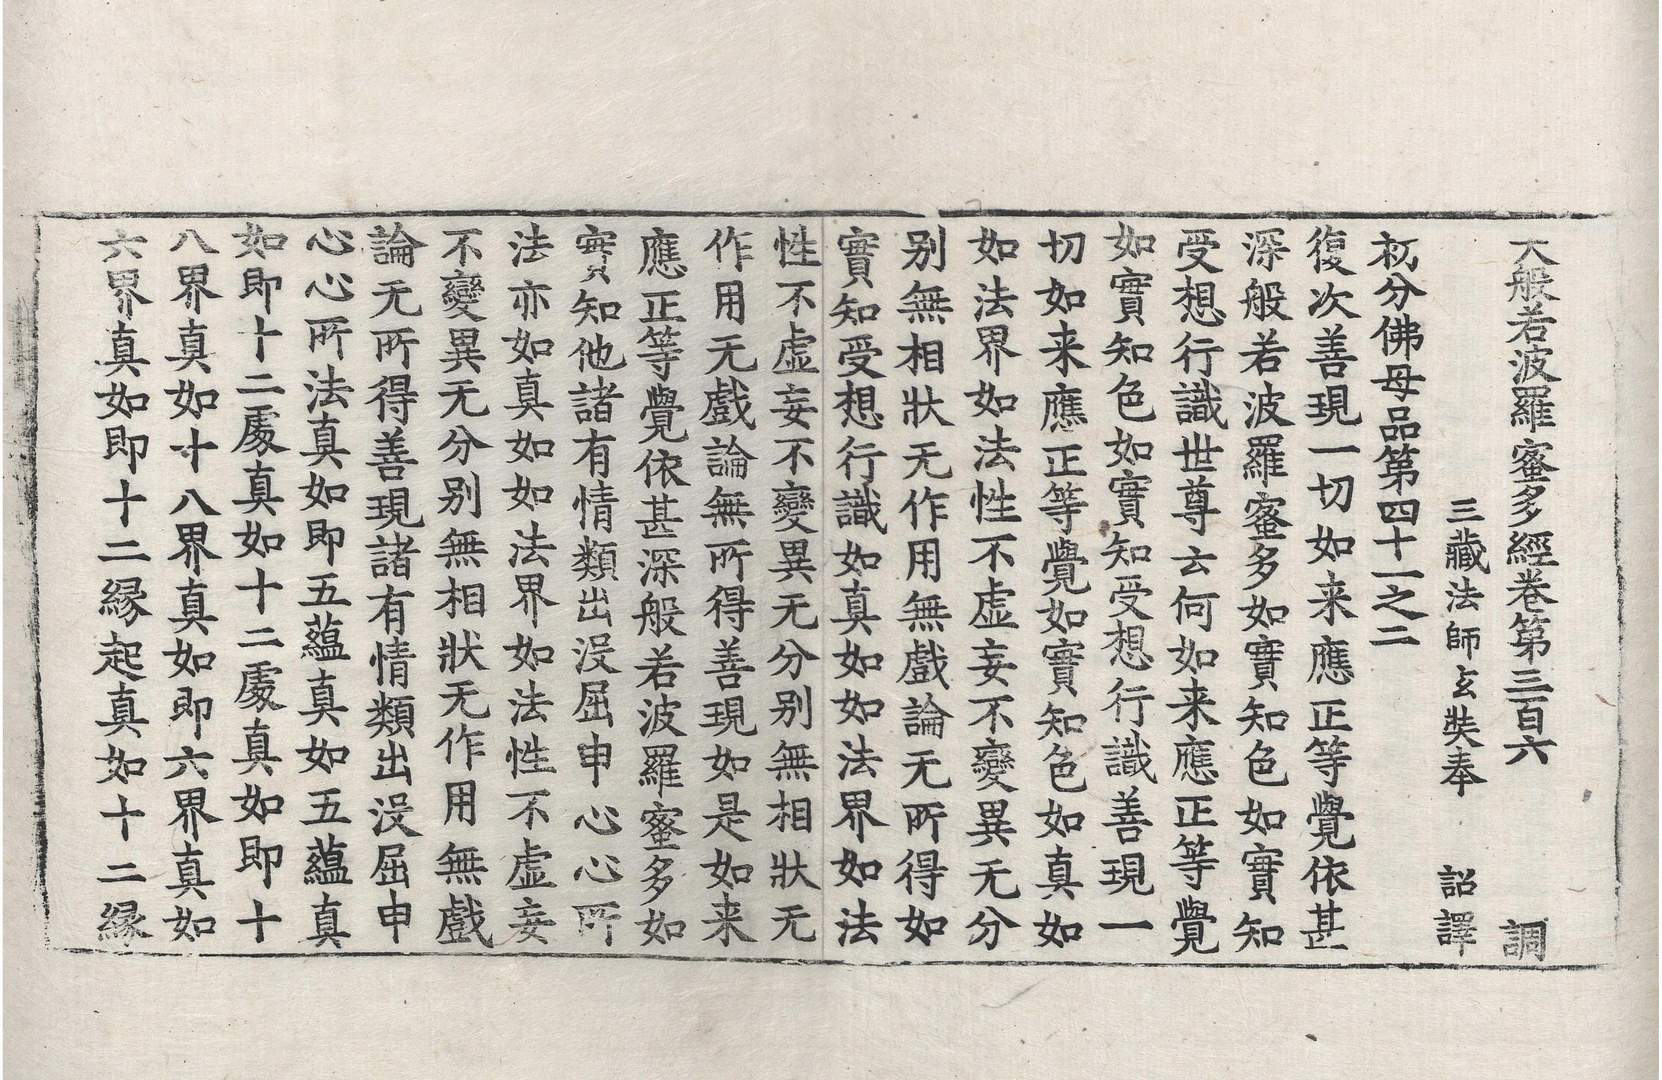 大般若波羅蜜多經卷第三百六 調
三藏法師玄奘奉 詔譯
初分佛母品第四十一之二
復次善現一切如来應正等覺依甚
深般若波羅蜜多如實知色如實知
受想行識世尊云何如来應正等覺
如實知色如實知受想行識善現一
切如来應正等覺如實知色如真如
如法界如法性不虛妄不變異无分
别無相狀无作用無戲論无所得如
實知受想行識如真如如法界如法
性不虛妄不變異无分别無相狀无
作用无戲論無所得善現如是如来
應正等覺依甚深般若波羅蜜多如
實知他諸有情類出没屈申心心所
法亦如真如如法界如法性不虛妄
不變異无分别無相狀无作用無戲
論无所得善現諸有情類出没屈申
心心所法真如即五蘊真如五蘊真
如即十二處真如十二處真如即十
八界真如十八界真如即六界真如
六界真如即十二縁起真如十二縁